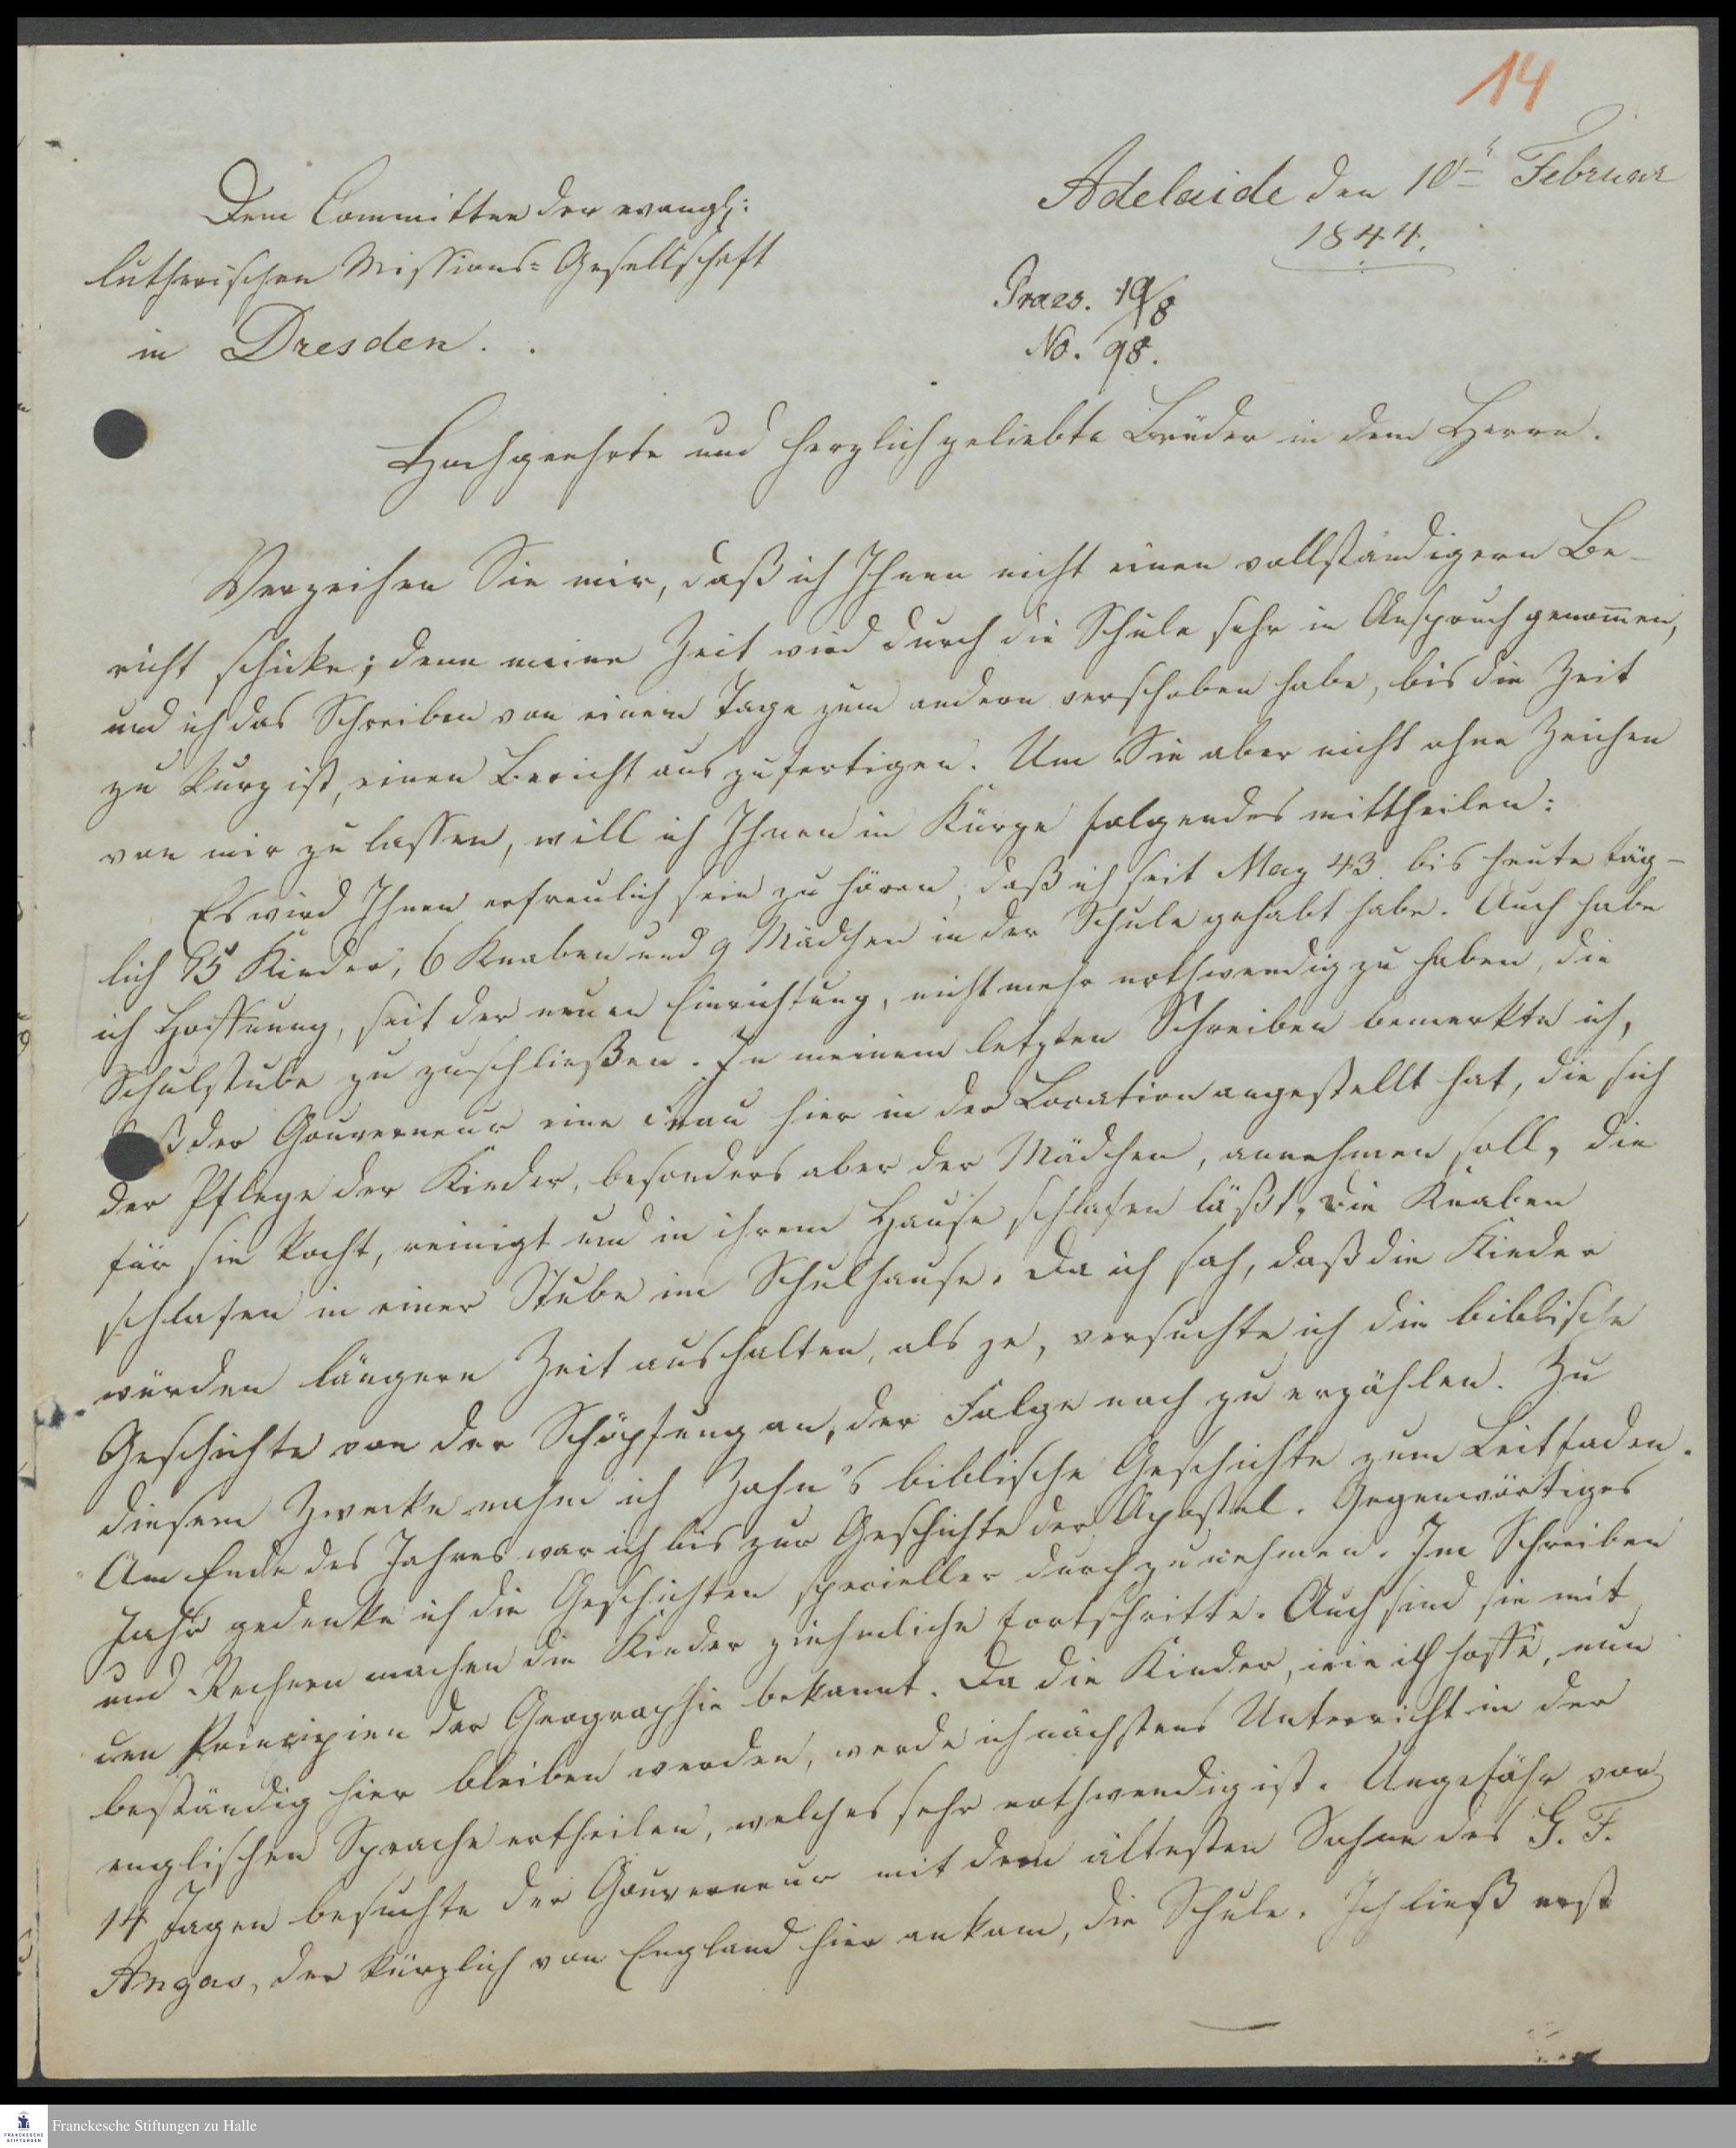 14
Adelaide den 10ᵗ Februar
1844.
Dem Committee der evangl:
lutherischen Missions-Gesellschaft
in Dresden.
Praes. 19/8
No. 98.
Hochgeehrte und herzlich geliebte Brüder in dem Herrn.
Verzeihen Sie mir, daß ich Ihnen nicht einen vollständigern Be-
richt schicke; denn meine Zeit wird durch die Schule sehr in Anspruch genom̄en,
und ich das Schreiben von einem Tage zum andern verschoben habe, bis die Zeit
zu kurz ist, einen Bericht aus zufertigen. Um Sie aber nicht ohne Zeichen
von mir zu lassen, will ich Ihnen in Kürze folgendes mittheilen:
Es wird Ihnen erfreulich sein zu hören, daß ich seit May 43. bis heute täg-
lich 15 Kinder, 6 Knaben und 9 Mädchen in der Schule gehabt habe. Auch habe
ich Hoffnung, seit der neuen Einrichtung, nicht mehr nothwendig zu haben, die
Schulstube zu zuschließen. In meinem letzten Schreiben bemerkte ich,
daß der Gouverneur eine Frau hier in der Location angestellt hat, die sich
der Pflege der Kinder, besonders aber der Mädchen, annehmen soll, die
für sie kocht, reinigt und in ihrem Hause schlafen läßt, die Knaben
schlafen in einer Stube im Schulhause. Da ich sah, daß die Kinder
würden längere Zeit aushalten, als je, versuchte ich die biblische
Geschichte von der Schöpfung an, der Folge nach zu erzählen. Zu
diesem Zwecke nahm ich Zahn's biblische Geschichte zum Leitfaden.
Am Ende des Jahres war ich bis zur Geschichte der Apostel. Gegenwärtiges
Jahr gedenke ich die Geschichten specieller durchzunehmen. Im Schreiben
und Rechnen machen die Kinder ziehmliche Fortschritte. Auch sind sie mit
den Principien der Geographie bekannt. Da die Kinder, wie ich hoffe, nun
beständig hier bleiben werden, werde ich nächstens Unterricht in der
englischen Sprache ertheilen, welches sehr nothwendig ist. Ungefähr vor
14 Tagen besuchte der Gouverneur mit dem ältesten Sohne des G. F.
Angas, der kürzlich von England hier ankam, die Schule. Ich ließ erst
Franckesche Stiftungen zu Halle
FRANCKESCHE
STIFTUNGEN